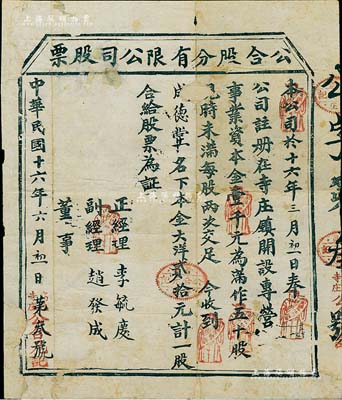 公合股分有限公司股票
本公司於十六年三月初一日奉
公司註册在寺庄鎮開設專營
事業資本金壹千元為滿作五十股
時未滿每股两次交足 今收到
成德堂名下本金大洋貳拾元計一股
合給股票為証
正經理 李毓慶
副經理 趙發成
董事
中華民國十六年六月初一日 第叁號